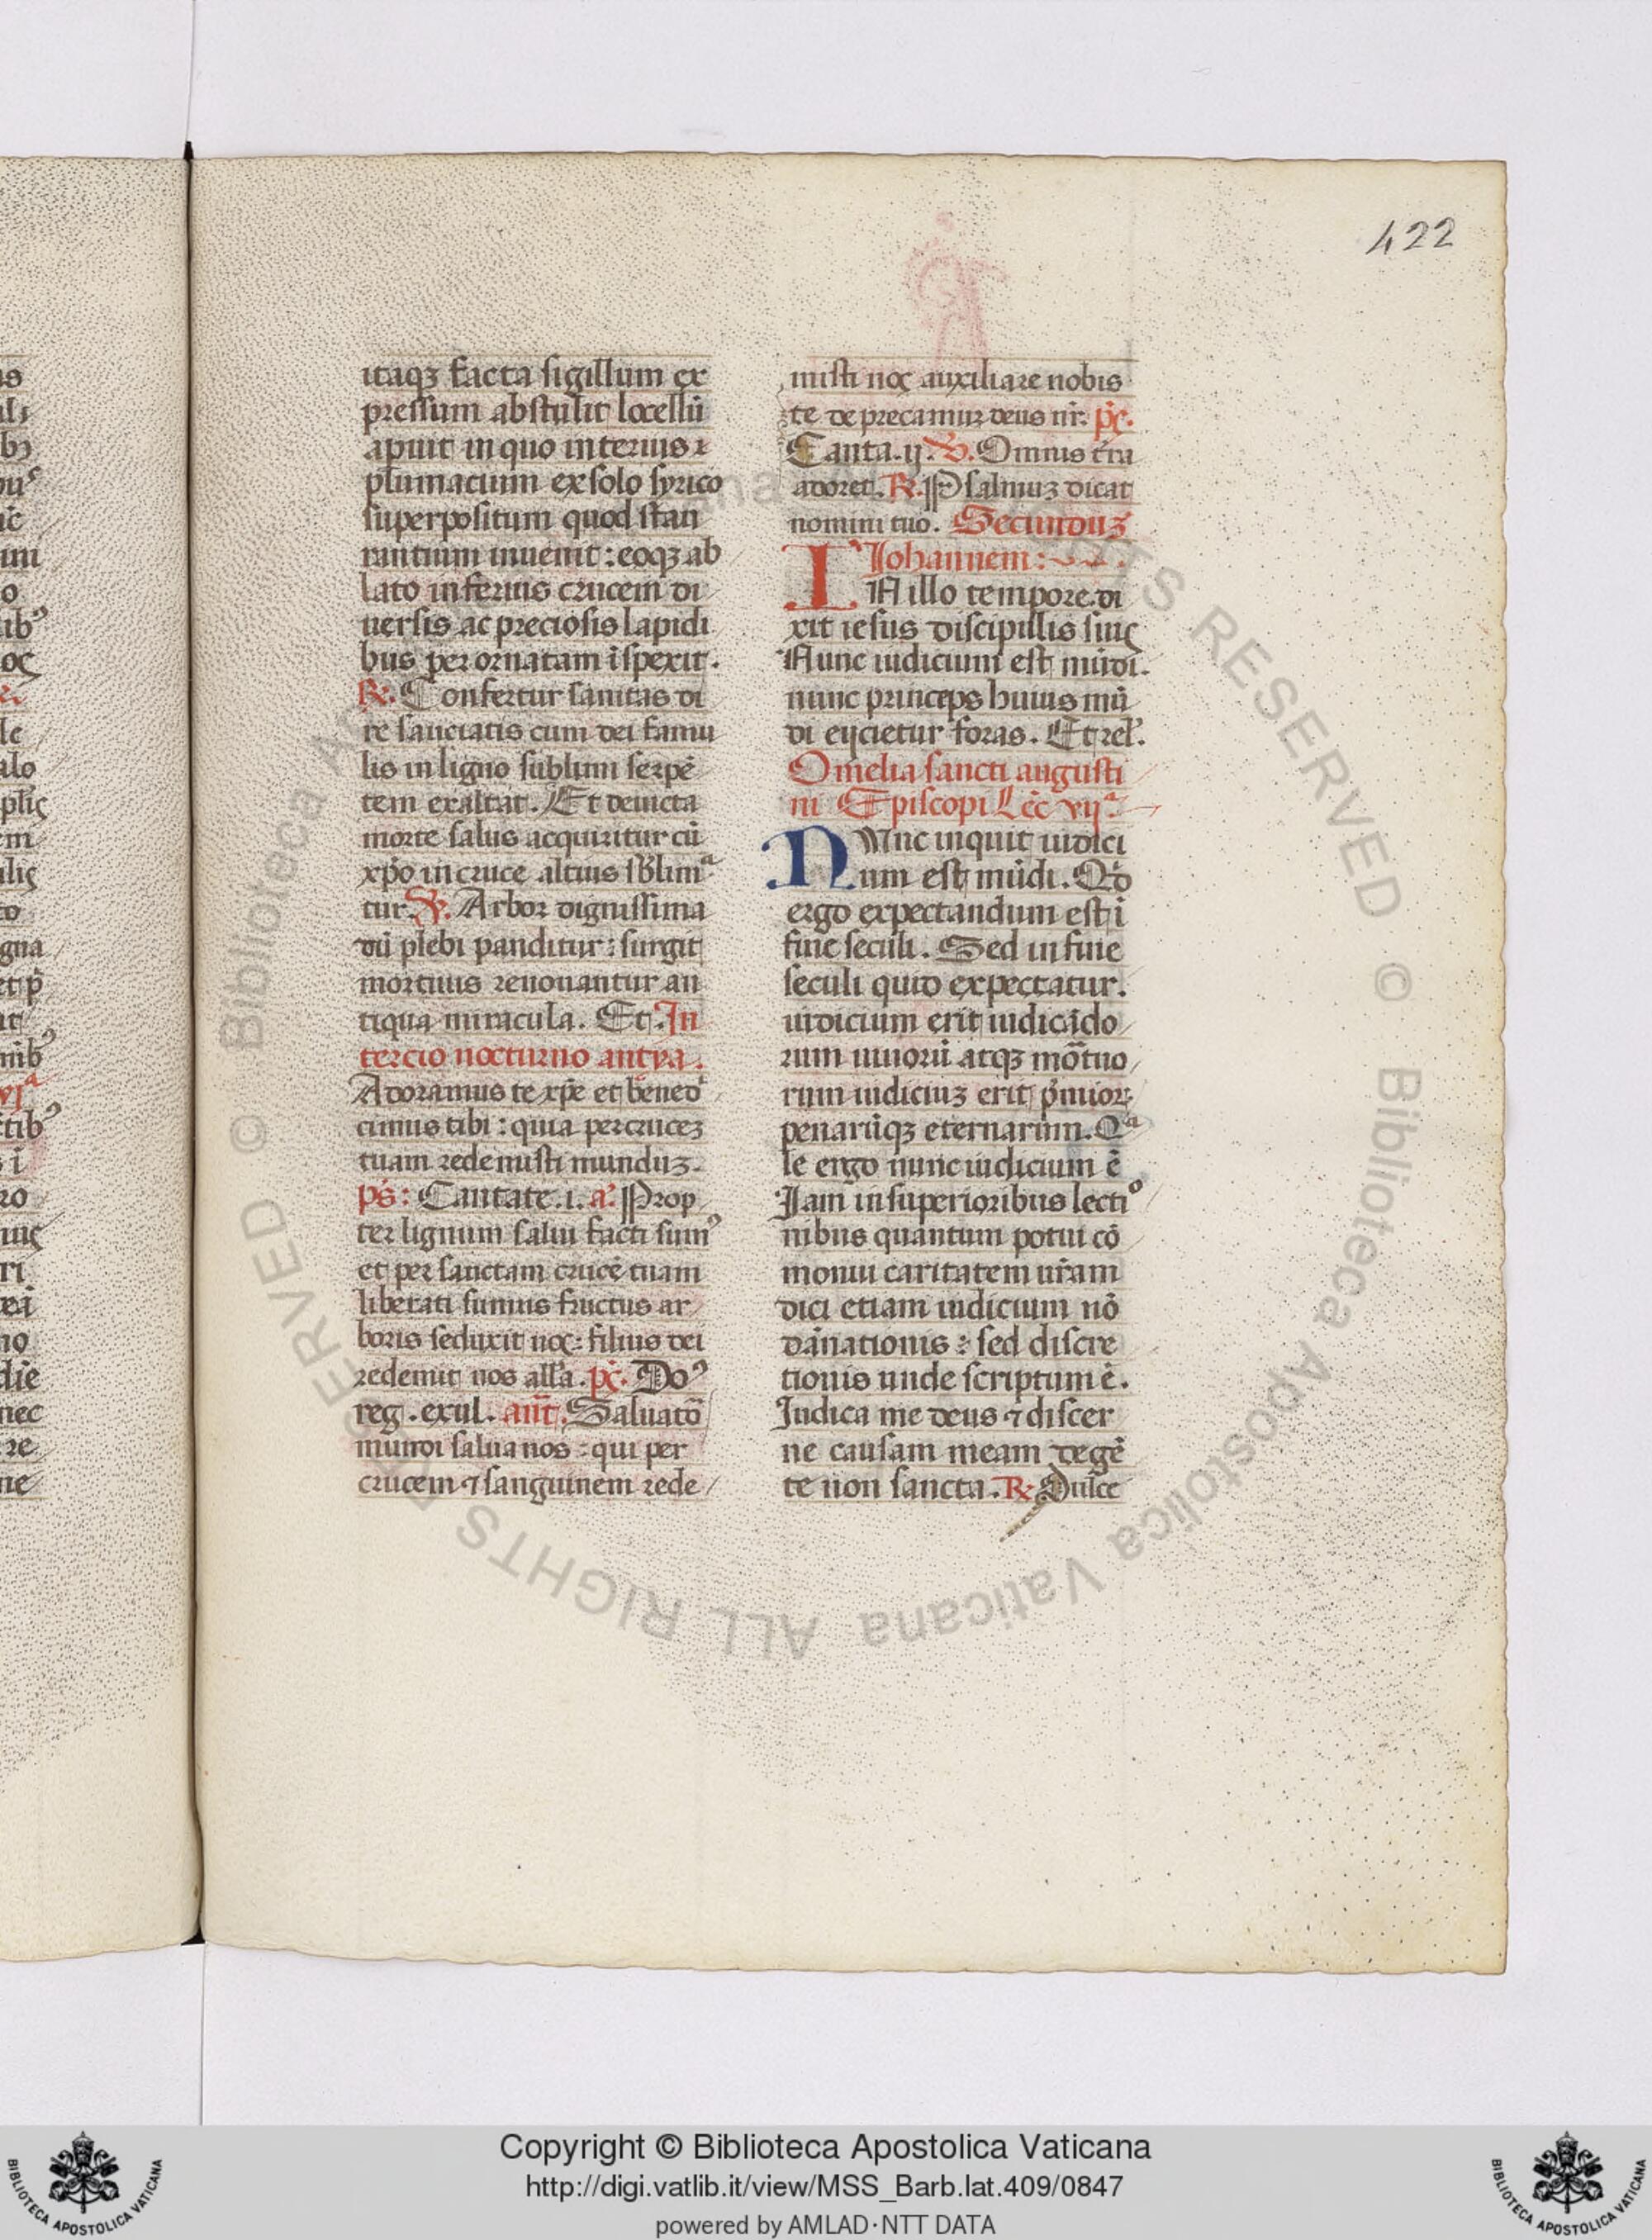 422
itaqꝫ facta sigillum ex
pressum abstulit locellū
apuit in quo interius ꝛ
plumacium ex solo syrico
superpositum quod stau
rantium inuenit : eoqꝫ ab
lato inferius crucem di
uersis ac preciosis lapidi
bus per ornatam īspexit.
℟. Confertur sanitas di
re sauciatis cum dei famu
lis in ligno sublimi serpē
tem exaltat. Et deuicta
morte salus acquiritur cū
xp̄o in cruce altius sb̄limᵃ
tur. ℣. Arbor dignissima
dū plebi panditur : surgit
mortuus renouantur an
tiqua miracula. Et. In
tercio nocturno antya.
Adoramus te xp̄e et bened
cimus tibi : quia per cruceꝫ
tuam redemisti munduꝫ.
pś: Cantate .i. a: Prop
ter lignum salui facti sumꝰ
et per sanctam crucē tuam
liberati sumus fructus ar
boris seduxit noς: filius dei
redemit nos all'a. pς. Doꝰ
reg. exul. an̄t. Saluatō
mundi salua nos : qui per
crucem ⁊ sanguinem rede
misti noς auxiliare nobis
te de precamur deus nr̄. pς.
Canta .ij. ℣. Omnis t̄ra
adoret. ℟. Psalmuꝫ dicat
nomini tuo. Secunduꝫ
Johannem :
IN illo tempore. di
xit iesus discipulis suiς
Nunc iudicium est mūdi.
nunc princeps huius mū
di eijcietur foras. Et rel'.
Omelia sancti augusti
ni Episcopi Lec̄ vijᵃ.
NUnc inquit iudici
um est mūdi. Qd̄
ergo expectandum est ī
fine seculi. Sed in fine
seculi quid expectatur.
iudicium erit iudicādo
rum uiuorū atqꝫ mor̄tuo
rum iudiciuꝫ erit p̄mioꝝ
penarūqꝫ eternarum. Qᵃ
le ergo nunc iudicium ē
Jam in superioribus lectiᵒ
nibus quantum potui cō
monui caritatem ur̄am
dici etiam iudicium nō
dānationis : sed discre
tionis unde scriptum ē.
Judica me deus ⁊ discer
ne causam meam de gē
te non sancta. ℟ Dulce
© Biblioteca Apostolica Vaticana ALL RIGHTS RESERVED
Copyright © Biblioteca Apostolica Vaticana
http://digi.vatlib.it/view/MSS_Barb.lat.409/0847
powered by AMLAD·NTT DATA
BIBLIOTECA APOSTOLICA VATICANA
BIBLIOTECA APOSTOLICA VATICANA